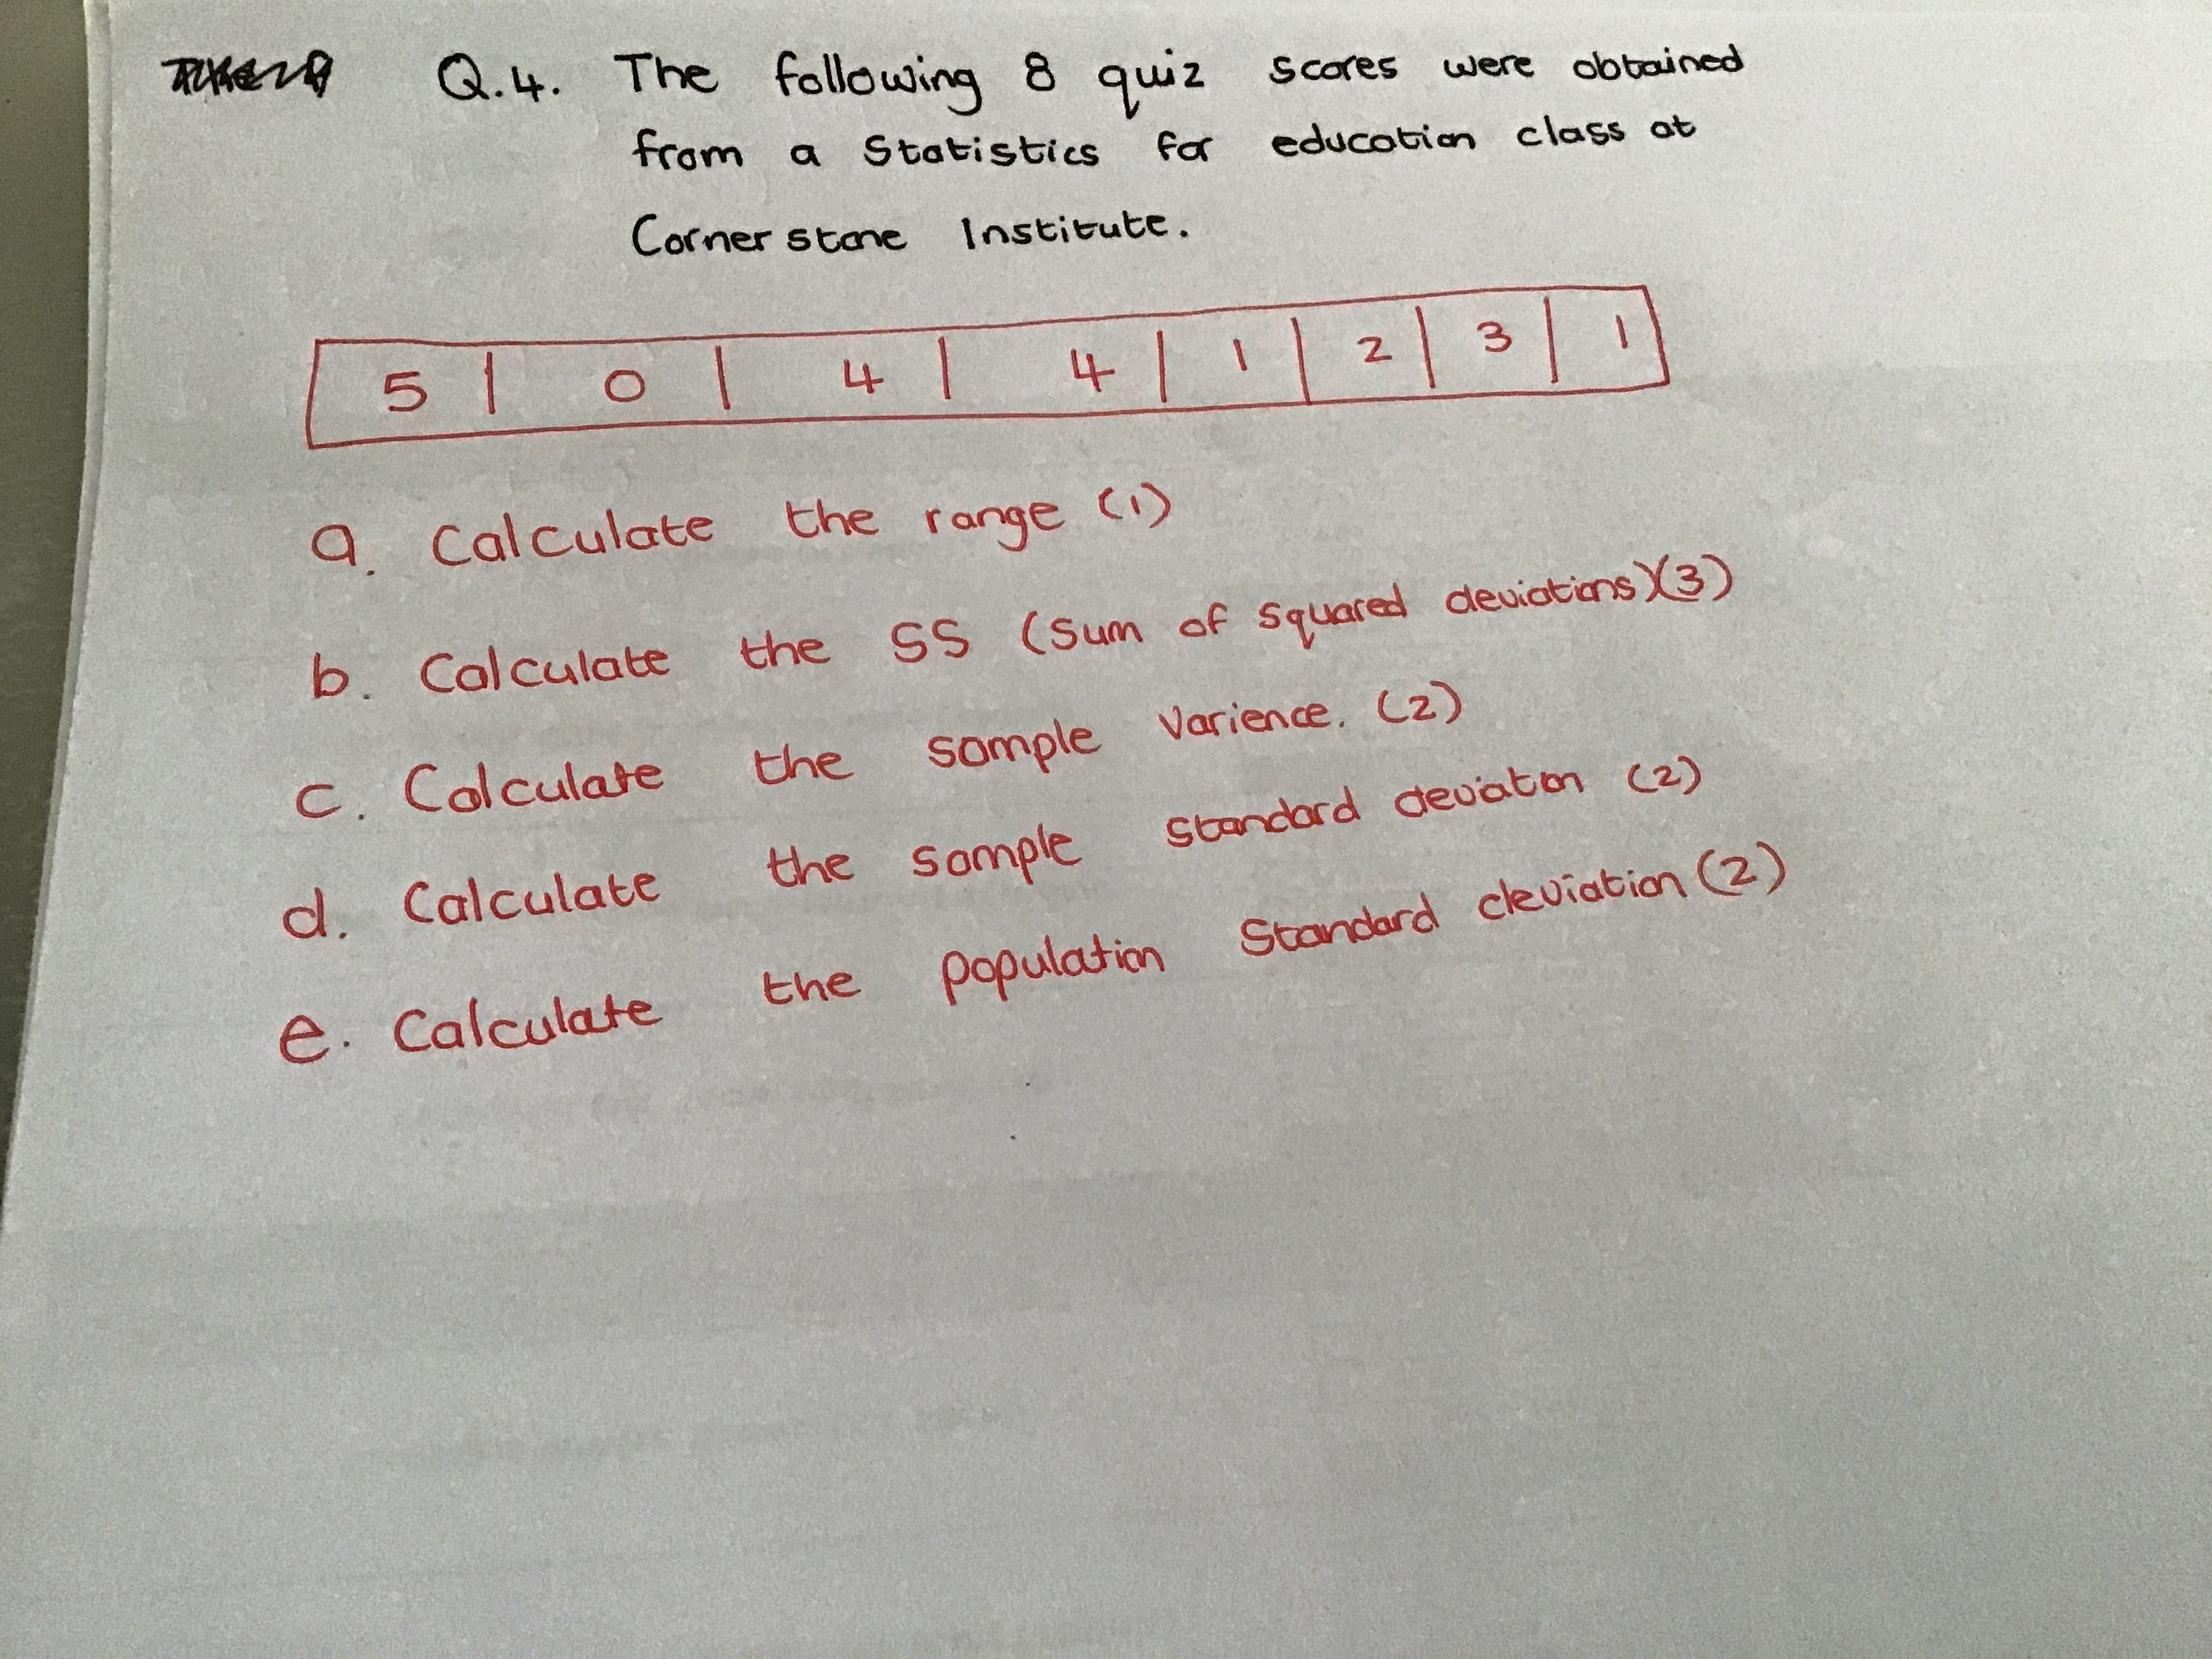 Q.4. The following 8 quiz scores were obtained
from a Statistics for education class at
Corner stone Institute.
5 | 0 | 4 | 4 | 1 | 2 | 3 | 1
a. Calculate the range (1)
b. Calculate the SS (Sum of squared deviations)(3)
c. Calculate the sample Varience. (2)
d. Calculate the sample standard deviaton (2)
e. Calculate the population Standard deviation (2)